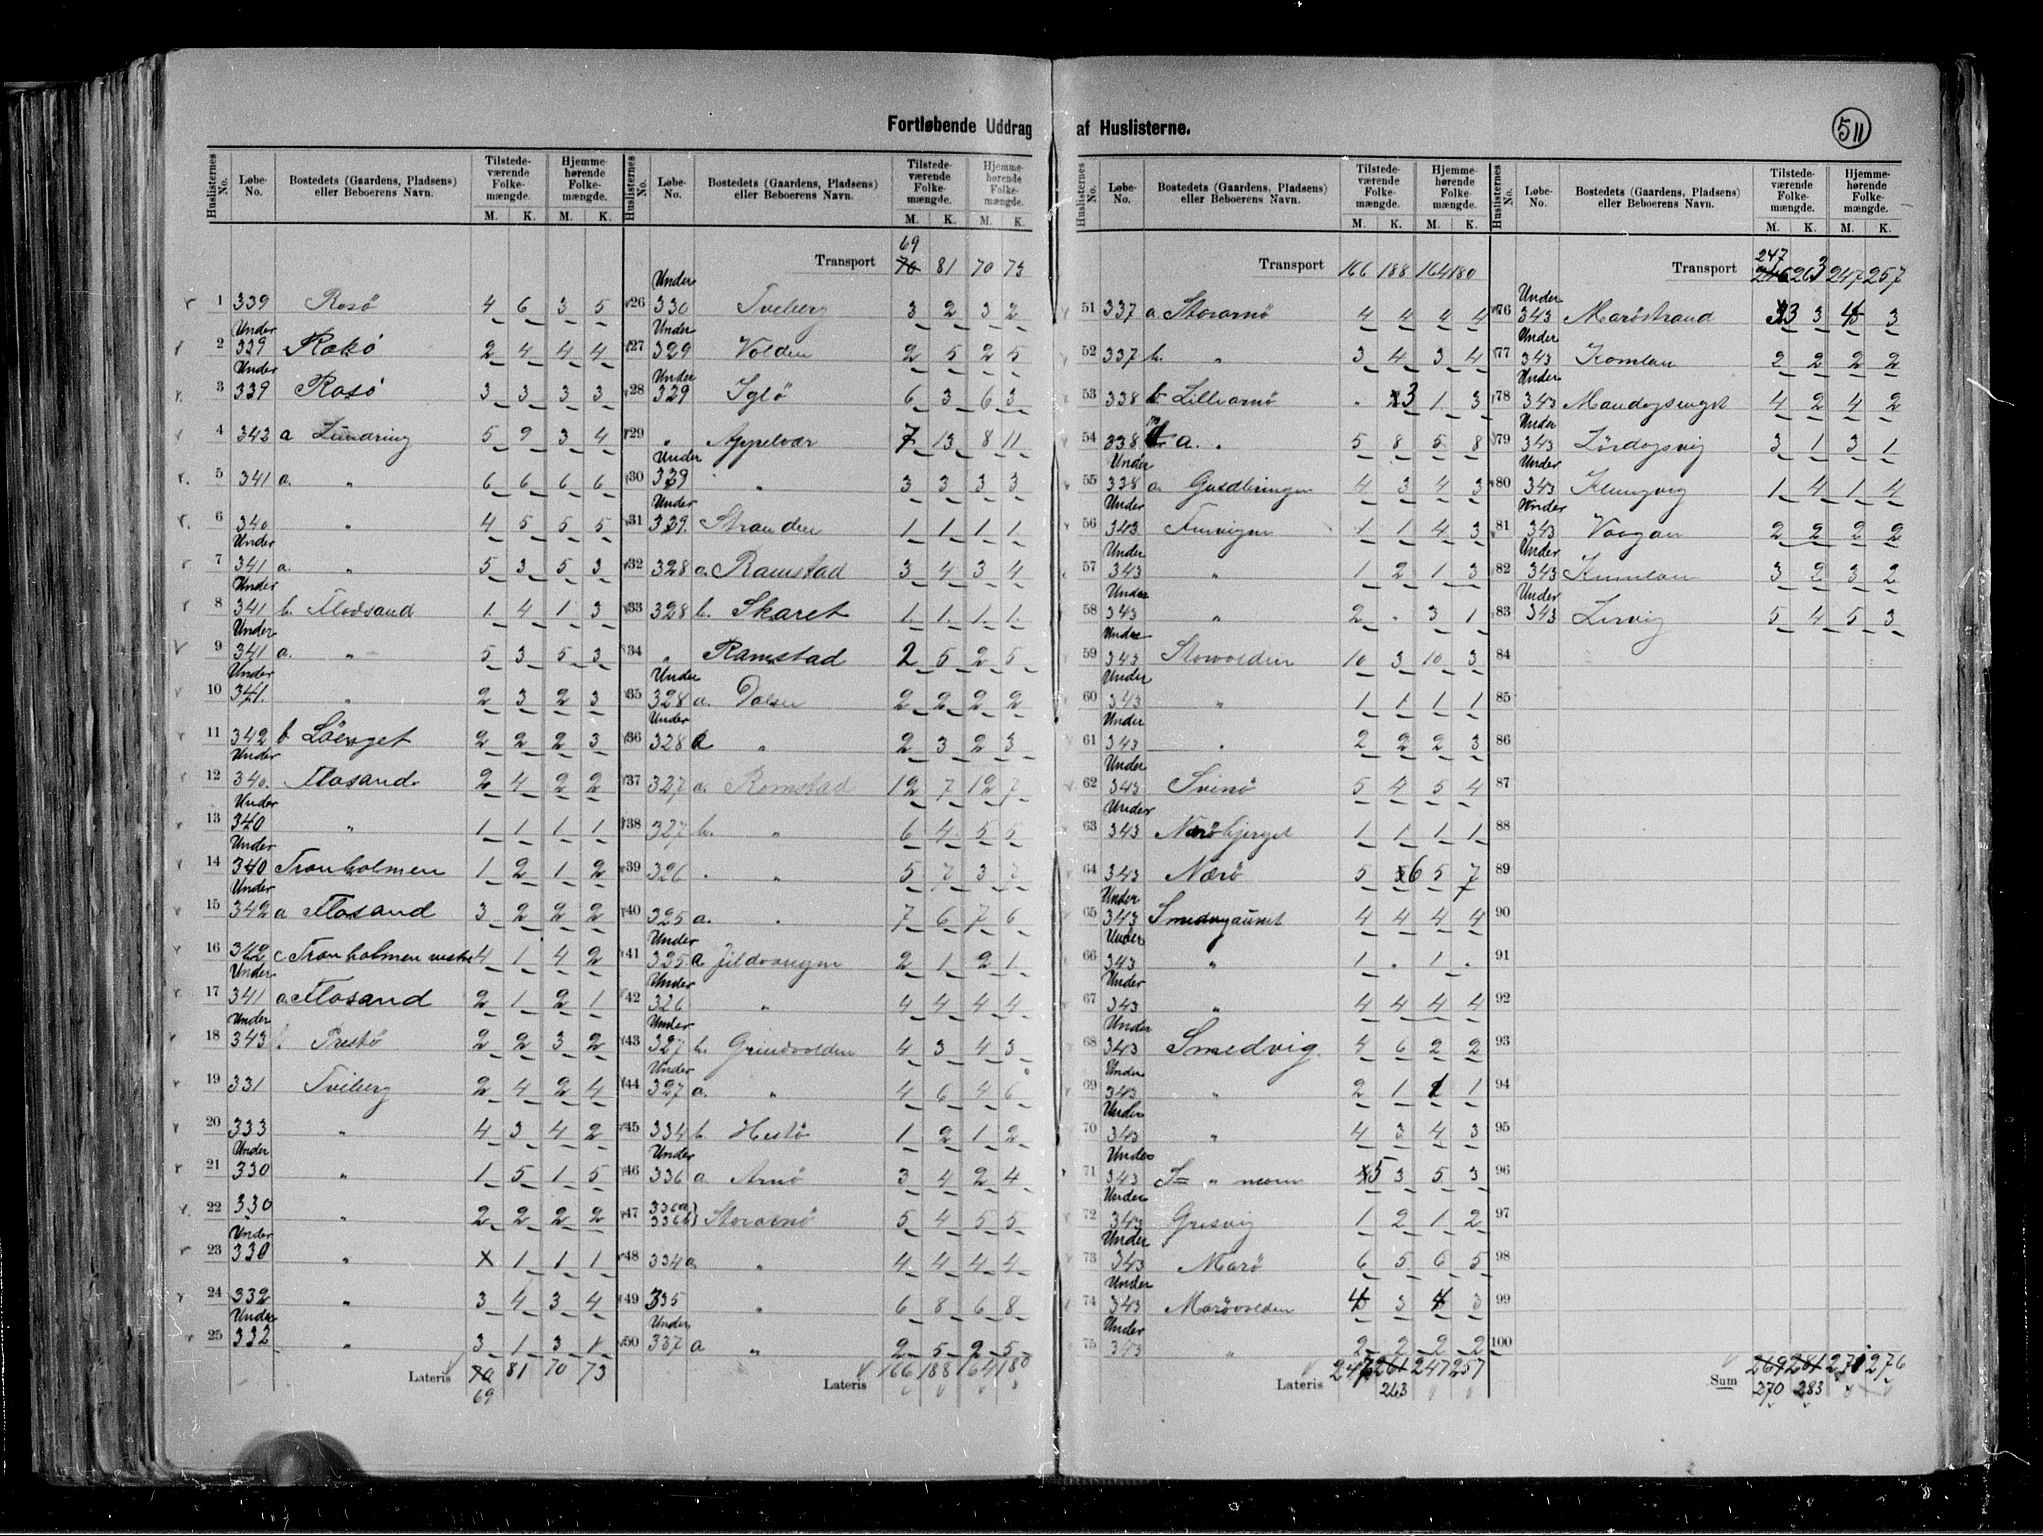 Fortløbende Uddrag af Huslisterne.
511
Huslisternes No. Løbe-No. Bostedets (Gaardens, Pladsens) eller Beboerens Navn. Tilstedeværende Folkemængde. M. K. Hjemmehørende Folkemængde. M. K.
1 339 Rosø 4 6 3 5
2 Under 339 Rosø 2 4 4 4
3 Under 339 Rosø 3 3 3 3
4 342 a Lundring 5 9 3 4
5 341 a. " 6 6 6 6
6 340 " 4 5 5 5
7 Under 341 a. " 5 3 5 3
8 Under 341 b. Flosand 1 4 1 3
9 Under 341 a. " 5 3 5 3
10 Under 341. " 2 3 2 3
11 342 b 2 2 2 3
12 Under 340. Flosand 2 4 2 2
13 Under 340 " 1 1 1 1
14 Under 340 Tranholmen 1 2 1 2
15 Under 342 a Flosand 3 2 2 2
16 342 c. Tranholmen vestre 4 1 4 2
17 Under 341 a. Flosand 2 1 2 1
18 Under 343 Prestø 2 2 3 2
19 331 Tviberg 2 4 2 4
20 333 " 4 3 4 2
21 Under 330 " 1 5 1 5
22 330 " 2 2 2 2
23 Under 330 " x 1 1 1
24 332 " 3 4 3 4
25 Under 332 " 3 1 3 1
Lateris 70 81 70 73
69
Transport 70 81 70 73
69
26 Under 330 Tviberg 3 2 3 2
27 Under 329 Volden 2 5 2 5
28 Under 329 Iglø 6 3 6 3
29 " Appelvær 7 13 8 11
30 Under 339 " 3 3 3 3
31 Under 329. Stranden 1 1 1 1
32 328 a. Ramstad 3 4 3 4
33 328 b. Skaret 1. 1. 1. 1.
34 " Ramstad 2 5 2 5
35 Under 328 a. Dalen 2 2 2 2
36 Under 328 a " 2 3 2 3
37 327 a. Romstad 12 7 12 7
38 327 b. " 6 4 5 5
39 326 " 5 7 3 7
40 325 a. " 7 6 7 6
41 Under 325 a Jildvangen 2 1 2 1
42 Under 326 " 4 4 4 4
43 Under 327 b. Grindvolden 4 3 4 3
44 Under 327 a. " 4 6 4 6
45 334 b. Hestø 1 2 1 2
46 Under 336 a Arnø 3 4 2 4
47 336a 336b Storarnø 5 4 5 5
48 334 a. " 4 4 4 4
49 335 " 6 8 6 8
50 Under 337 a " 2 5 2 5
Lateris 166 188 164 180
Transport 166 188 164 180
51 337 a. Storarnø 4 4 4 4
52 337 b. " 3 4 3 4
53 338 b Lillearnø . 3 1 3
54 338 a. " 5 8 5 8
55 Under 338 a. Guldbringen 4 3 4 3
56 Under 343 Finvigen 1 1 4 3
57 Under 343 " 1 2 1 3
58 Under 343 " 2 . 3 1
59 Under 343 Storvolden 10 3 10 3
60 Under 343 " 1 1 1 1
61 Under 343 " 2 2 2 3
62 Under 343 Svinø 5 4 5 4
63 Under 343 Nærøbjerget 1 1 1 1
64 343 Nærø 5 6 5 7
65 Under 343 4 4 4 4
66 Under 343 " 1 . 1 .
67 Under 343 " 4 4 4 4
68 Under 343 Smedvig 4 6 2 2
69 Under 343 " 2 1 1 1
70 Under 343 " 4 3 4 3
71 Under 343 S= " 5 3 5 3
72 Under 343 Grisvig 1 2 1 2
73 Under 343 Marø 6 5 6 5
74 Under 343 Marøvolden 4 3 4 3
75 Under 343 " 2 2 2 2
Lateris 247 261 247 257
263
Transport 246 263 247 257
247
76 Under 343 Marøstrand 3 3 4 3
77 Under 343 Komlan 2 2 2 2
78 Under 343 4 2 4 2
79 Under 343 Lørdagsvig 3 1 3 1
80 Under 343 Klungvig 1 4 1 4
81 Under 343 Vaagan 2 2 2 2
82 Under 343 Kumlan 3 2 3 2
83 Under 343 Lervig 5 4 5 3
84
85
86
87
88
89
90
91
92
93
94
95
96
97
98
99
100
Sum 269 281 270 276
270 283